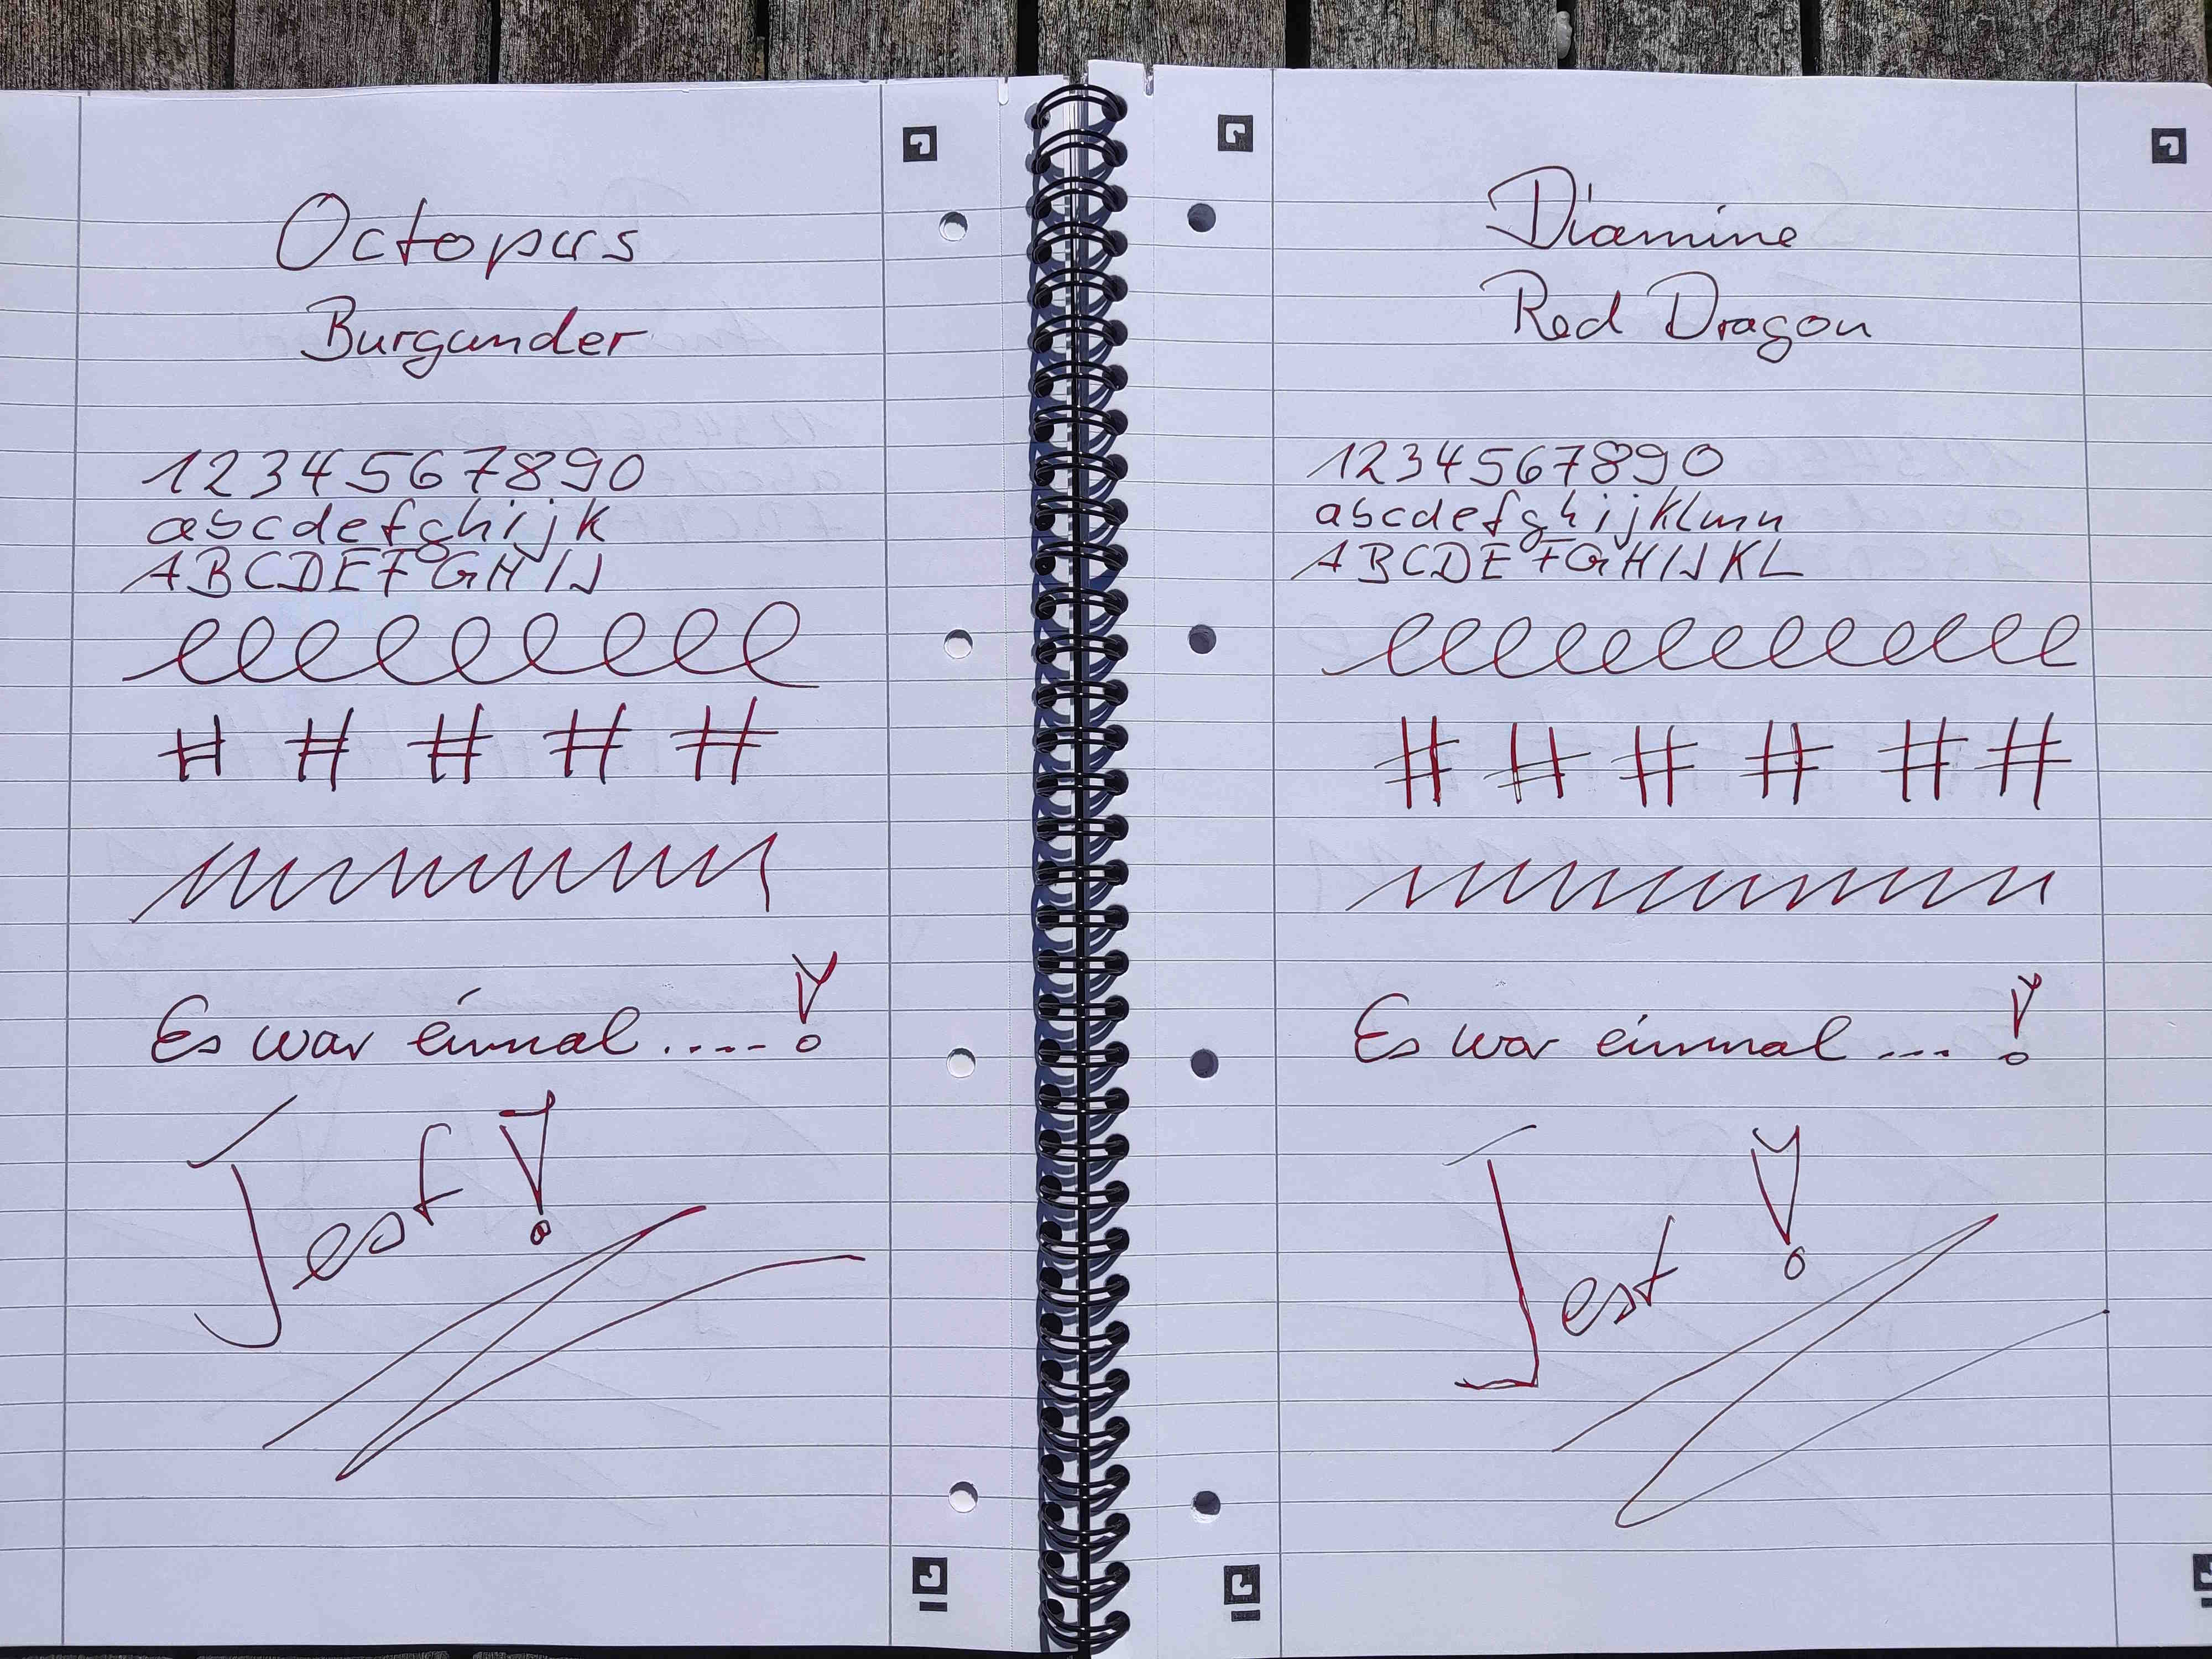 Octopus
Burgunder
1234567890
abcdefghijk
ABCDEFGHIJ
# # # # #
Es war einmal ....!
Test!
Diamine
Red Dragon
1234567890
abcdefghijklmn
ABCDEFGHIJKL
# # # # # #
Es war einmal ...!
Test!